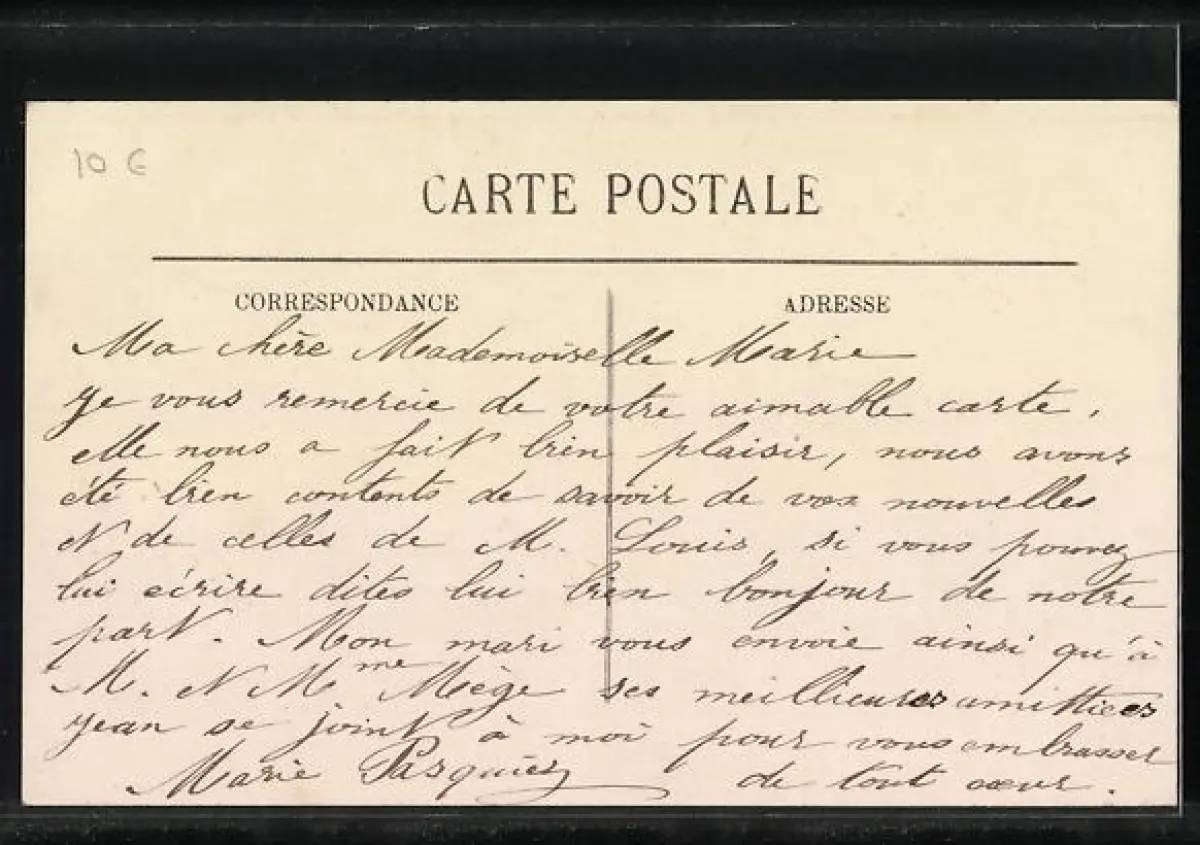 10 €
CARTE POSTALE
CORRESPONDANCE
ADRESSE
Ma chère Mademoiselle Marie
Je vous remercie de votre aimable carte,
elle nous a fait bien plaisir, nous avons
été bien contents de savoir de vos nouvelles
et de celles de M. Louis, si vous pouvez
lui écrire dites lui bien bonjour de notre
part. Mon mari vous envoie ainsi qu'à
M. et Mme Mège ses meilleures amitiées
Jean se joint à moi pour vous embrasser
de tout cœur.
Marie Pasquiez